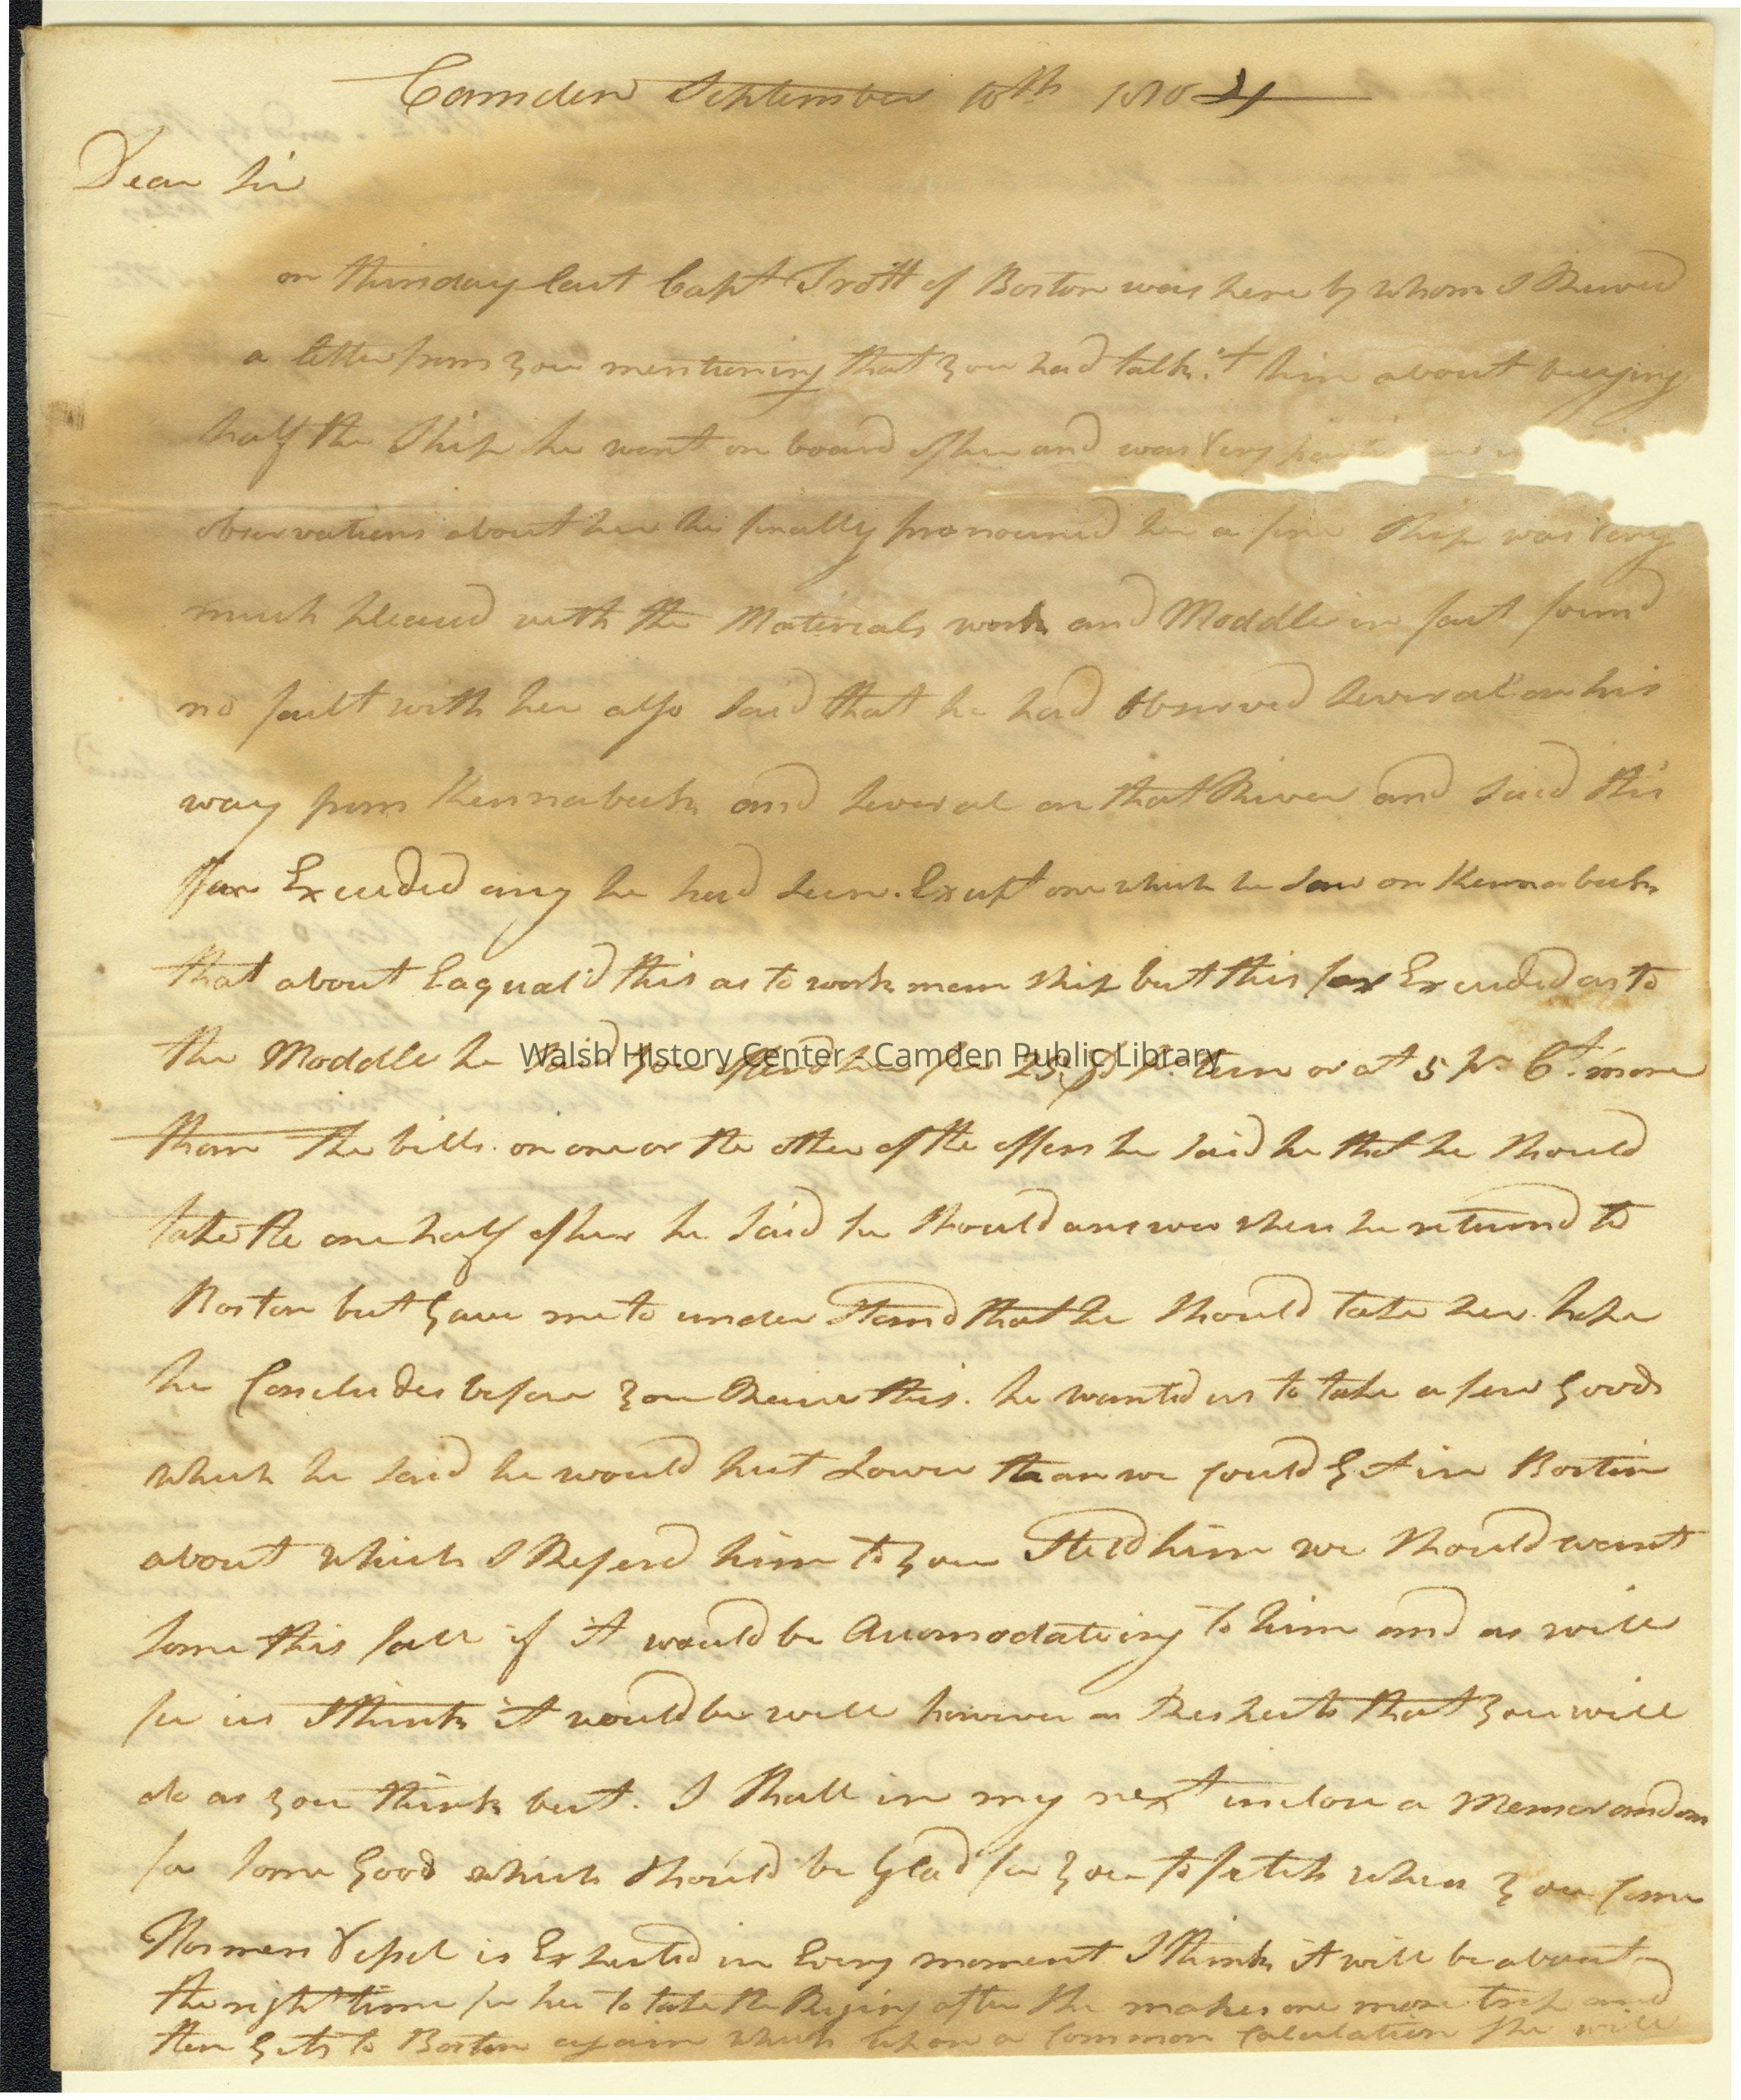 Camden September 10th 1804
Dear Sir
on thursday last Capt Trott of Boston was here by whom I Receivd
a letter from you mentioning that you had talk't him about buying
half the Ship he went on board of her and was Very
observations about her he finally pronounced her a fine Ship was Very
much pleased with the Materials work and Moddle in fact found
no fault with her also Said that he had observed Several on his
way from Kennabeck and Several on that River and Said this
far Exceeded any he had Seen. Except one which he Saw on Kennabeck
that about Eaqual'd this as to workmanship but this far Exceeded as to
the Moddle he Said you offerd her for 25 Ds pr. tun or at 5 pr. Ct. more
Walsh History Center - Camden Public Library
than the bills. on one or the other of the offers he Said he that he Should
take the one half of her he Said he Should answer when he returnd to
Boston but gave me to under Stand that he Should take her. hope
he Concludes before you Receive this. he wanted us to take a few Goods
which he Said he would put Lower than we could Get in Boston
about which I Referd him to you I told him we Should want
Some this fall if it would be Accomodateing to him and as well
for us I think it would be well however as Respects that you will
do as you think best. I Shall in my next inclose a Memorandom
for Some Good which Should be Glad for you to fetch when you Come
Vessel is Expected in Every moment I think it will be about
the right time for her to take the Riging after She makes one more trip and
then Gets to Boston again which upon a Common Calculation She will